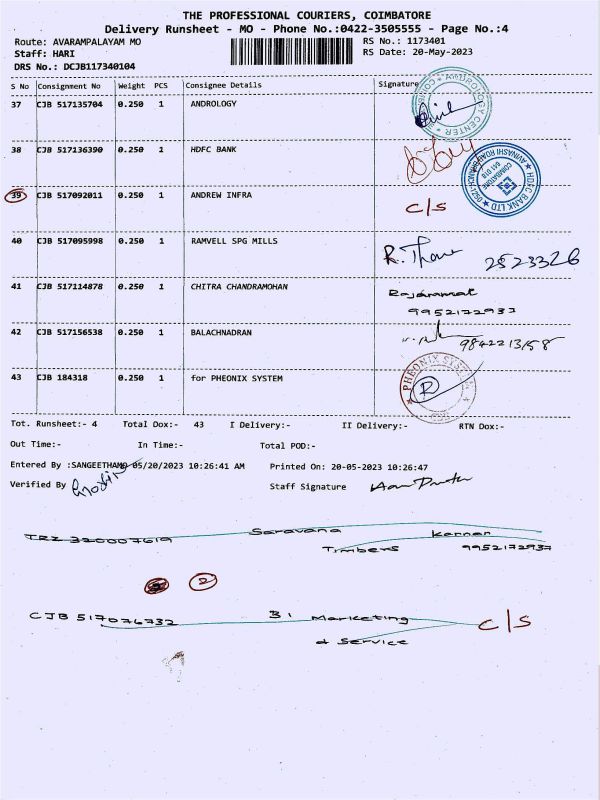 THE PROFESSIONAL COURIERS, COIMBATORE
Delivery Runsheet - MO - Phone No.:0422-3505555 - Page No.:4
Route: AVARAMPALAYAM MO RS No.: 1173401
Staff: HARI RS Date: 20-May-2023
DRS No.: DCJB117340104
S No Consignment No Weight PCS Consignee Details Signature
37 CJB 517135704 0.250 1 ANDROLOGY
ANDROLOGY CENTER
38 CJB 517136390 0.250 1 HDFC BANK
HDFC BANK LTD
COIMBATORE
641 018
39 CJB 517092011 0.250 1 ANDREW INFRA C/S
40 CJB 517095998 0.250 1 RAMVELL SPG MILLS R. 2523326
41 CJB 517114878 0.250 1 CHITRA CHANDRAMOHAN
42 CJB 517156538 0.250 1 BALACHNADRAN
43 CJB 184318 0.250 1 for PHEONIX SYSTEM
PHEONIX SYSTEM
R
Tot. Runsheet:- 4 Total Dox:- 43 I Delivery:- II Delivery:- RTN Dox:-
Out Time:- In Time:- Total POD:-
Entered By :SANGEETHAMO 05/20/2023 10:26:41 AM Printed On: 20-05-2023 10:26:47
Verified By Staff Signature
TRZ 320007619 Saravana Kannan
Timbers 9952172937
2
CJB 517076732 B. Marketing C/S
& Service